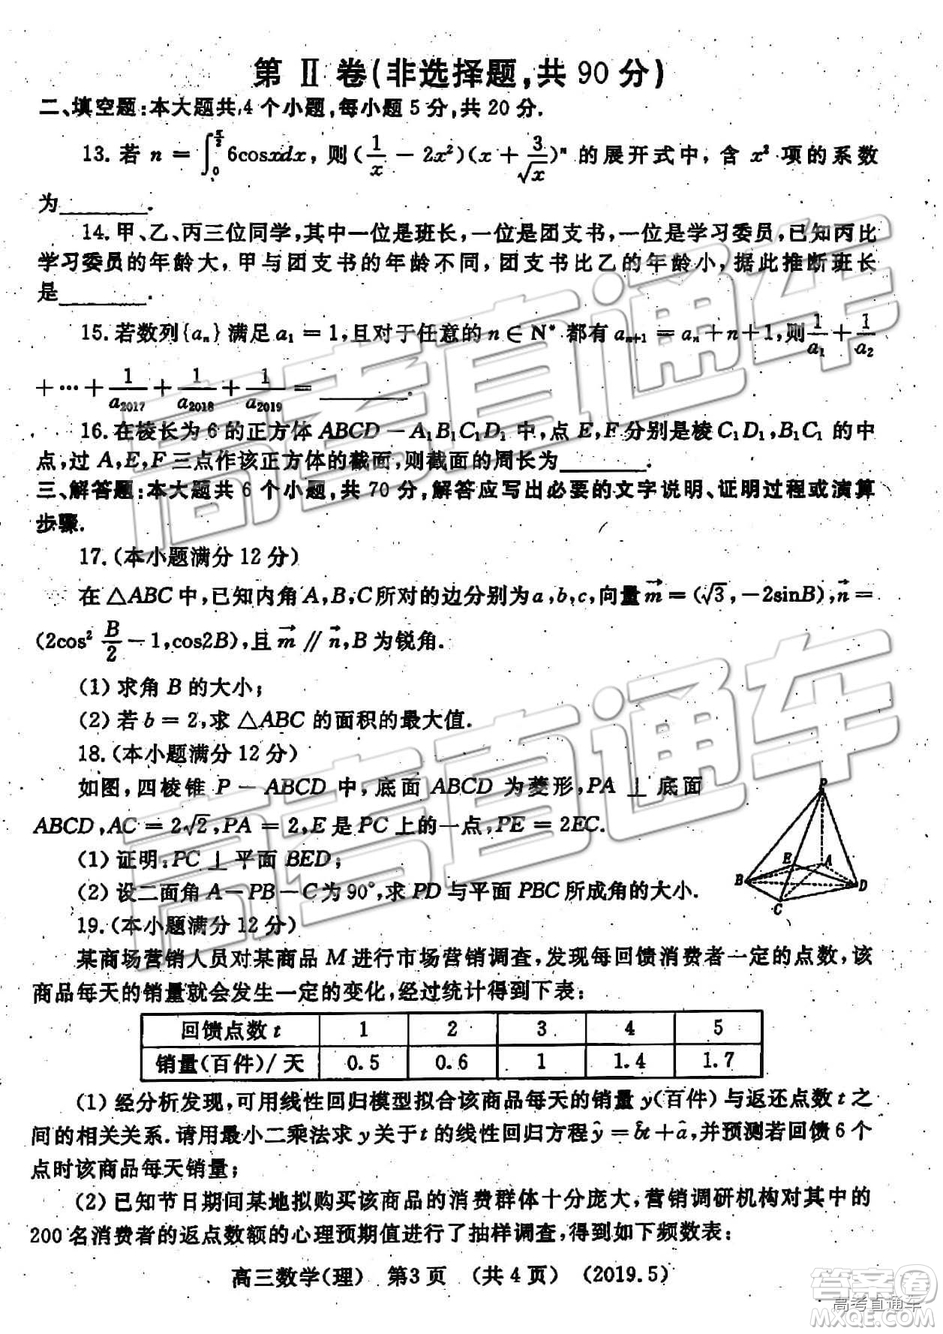 第 Ⅱ 卷(非选择题,共 90 分)
二、填空题:本大题共 4 个小题,每小题 5 分,共 20 分.
13. 若 n = ∫₀^{π/2} 6cosxdx, 则 (1/x − 2x²)(x + 3/√x)ⁿ 的展开式中, 含 x² 项的系数
为________.
14. 甲、乙、丙三位同学,其中一位是班长,一位是团支书,一位是学习委员,已知丙比
学习委员的年龄大,甲与团支书的年龄不同,团支书比乙的年龄小,据此推断班长
是________.
15. 若数列{aₙ}满足 a₁ = 1,且对于任意的 n ∈ N* 都有 aₙ₊₁ = aₙ + n + 1,则 1/a₁ + 1/a₂
+ ⋯ + 1/a₂₀₁₇ + 1/a₂₀₁₈ + 1/a₂₀₁₉ = ________.
16. 在棱长为 6 的正方体 ABCD − A₁B₁C₁D₁ 中,点 E,F 分别是棱 C₁D₁,B₁C₁ 的中
点,过 A,E,F 三点作该正方体的截面,则截面的周长为________.
三、解答题:本大题共 6 个小题,共 70 分,解答应写出必要的文字说明、证明过程或演算
步骤.
17. (本小题满分 12 分)
在 △ABC 中,已知内角 A,B,C 所对的边分别为 a,b,c,向量 m⃗ = (√3,−2sinB), n⃗ =
(2cos² B/2 − 1,cos2B),且 m⃗ ∥ n⃗,B 为锐角.
(1) 求角 B 的大小;
(2) 若 b = 2,求 △ABC 的面积的最大值.
18. (本小题满分 12 分)
如图,四棱锥 P − ABCD 中,底面 ABCD 为菱形,PA ⊥ 底面
ABCD,AC = 2√2,PA = 2,E 是 PC 上的一点,PE = 2EC.
(1) 证明:PC ⊥ 平面 BED;
(2) 设二面角 A − PB − C 为 90°,求 PD 与平面 PBC 所成角的大小.
P
E
A
B
D
C
19. (本小题满分 12 分)
某商场营销人员对某商品 M 进行市场营销调查,发现每回馈消费者一定的点数,该
商品每天的销量就会发生一定的变化,经过统计得到下表:
回馈点数 t 1 2 3 4 5
销量(百件)/天 0.5 0.6 1 1.4 1.7
(1) 经分析发现,可用线性回归模型拟合该商品每天的销量 y(百件) 与返还点数 t 之
间的相关关系.请用最小二乘法求 y 关于 t 的线性回归方程 ŷ = b̂t + â,并预测若回馈 6 个
点时该商品每天销量;
(2) 已知节日期间某地拟购买该商品的消费群体十分庞大,营销调研机构对其中的
200 名消费者的返点数额的心理预期值进行了抽样调查,得到如下频数表:
高三数学(理) 第3页 (共4页) (2019.5)
高考直通车
高考直通车
答案卷
高考直通车
MXQE.COM